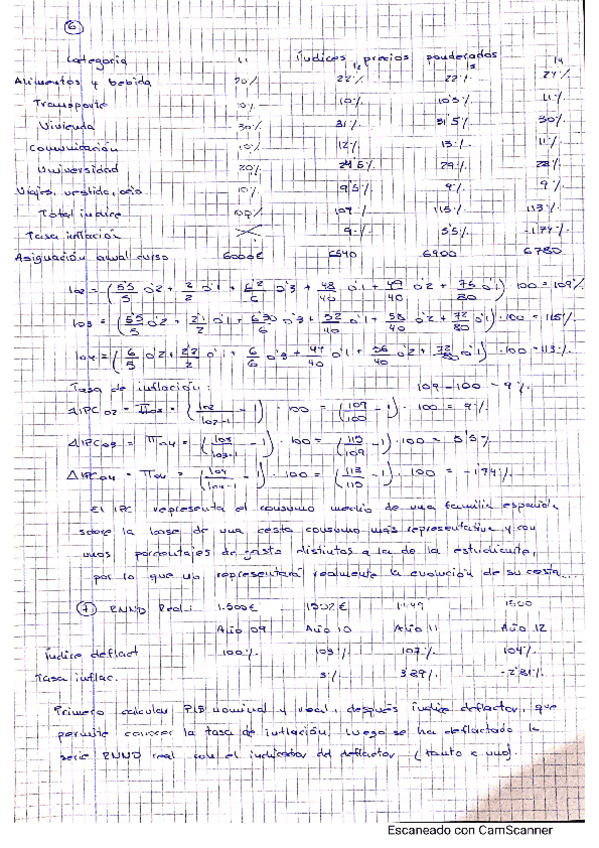 6
Categoria 11 Índices precios ponderados 14
12 13
Alimentos y bebida 20% 22% 22% 24%
Transporte 10% 10% 10'5% 11%
Vivienda 30% 31% 31'5% 30%
Comunicación 10% 12% 13% 11%
Universidad 20% 24'5% 29% 28%
Viajes, vestido, ocio 10% 9'5% 9% 9%
Total indice 100% 109% 115% 113%
Tasa inflación 9% 5'5% -1'74%
Asignación anual curso 6000€ 6540 6900 6780
I02 = (5'5/5 0'2 + 2/2 0'1 + 6'2/6 0'3 + 48/40 0'1 + 49/40 0'2 + 76/80 0'1) 100 = 109%
I03 = (5'5/5 0'2 + 2'1/2 0'1 + 6'30/6 0'3 + 52/40 0'1 + 58/40 0'2 + 72/80 0'1) · 100 = 115%
I04 = (6/5 0'2 + 2'2/2 0'1 + 6/6 0'3 + 44/40 0'1 + 56/40 0'2 + 72/80 0'1) · 100 = 113%
Tasa de inflación: 109 - 100 = 9%
ΔIPC02 = Π02 = (I02/I02-1 - 1) · 100 = (109/100 - 1) · 100 = 9%
ΔIPC03 = Π04 = (I03/I03-1 - 1) · 100 = (115/109 - 1) · 100 = 5'5%
ΔIPC04 = Π04 = (I04/I04-1 - 1) · 100 = (113/115 - 1) · 100 = -1'74%
El IPC representa el consumo medio de una familia española
sobre la base de una cesta consumo más representativa y con
unos porcentajes de gasto distintos a la de la estudiante,
por lo que no representará realmente la evolución de su cesta...
7 RNND Real: 1.500€ 1502€ 1149 1500
Año 09 Año 10 Año 11 Año 12
Índice deflact 100% 103% 107% 104%
Tasa inflac. 3% 3'89% -2'81%
Primero calcular PIB nominal y real, después índice deflactor, que
permite conocer la tasa de inflación. Luego se ha deflactado la
serie RNND real con el indicador del deflactor (tanto e uno)
Escaneado con CamScanner